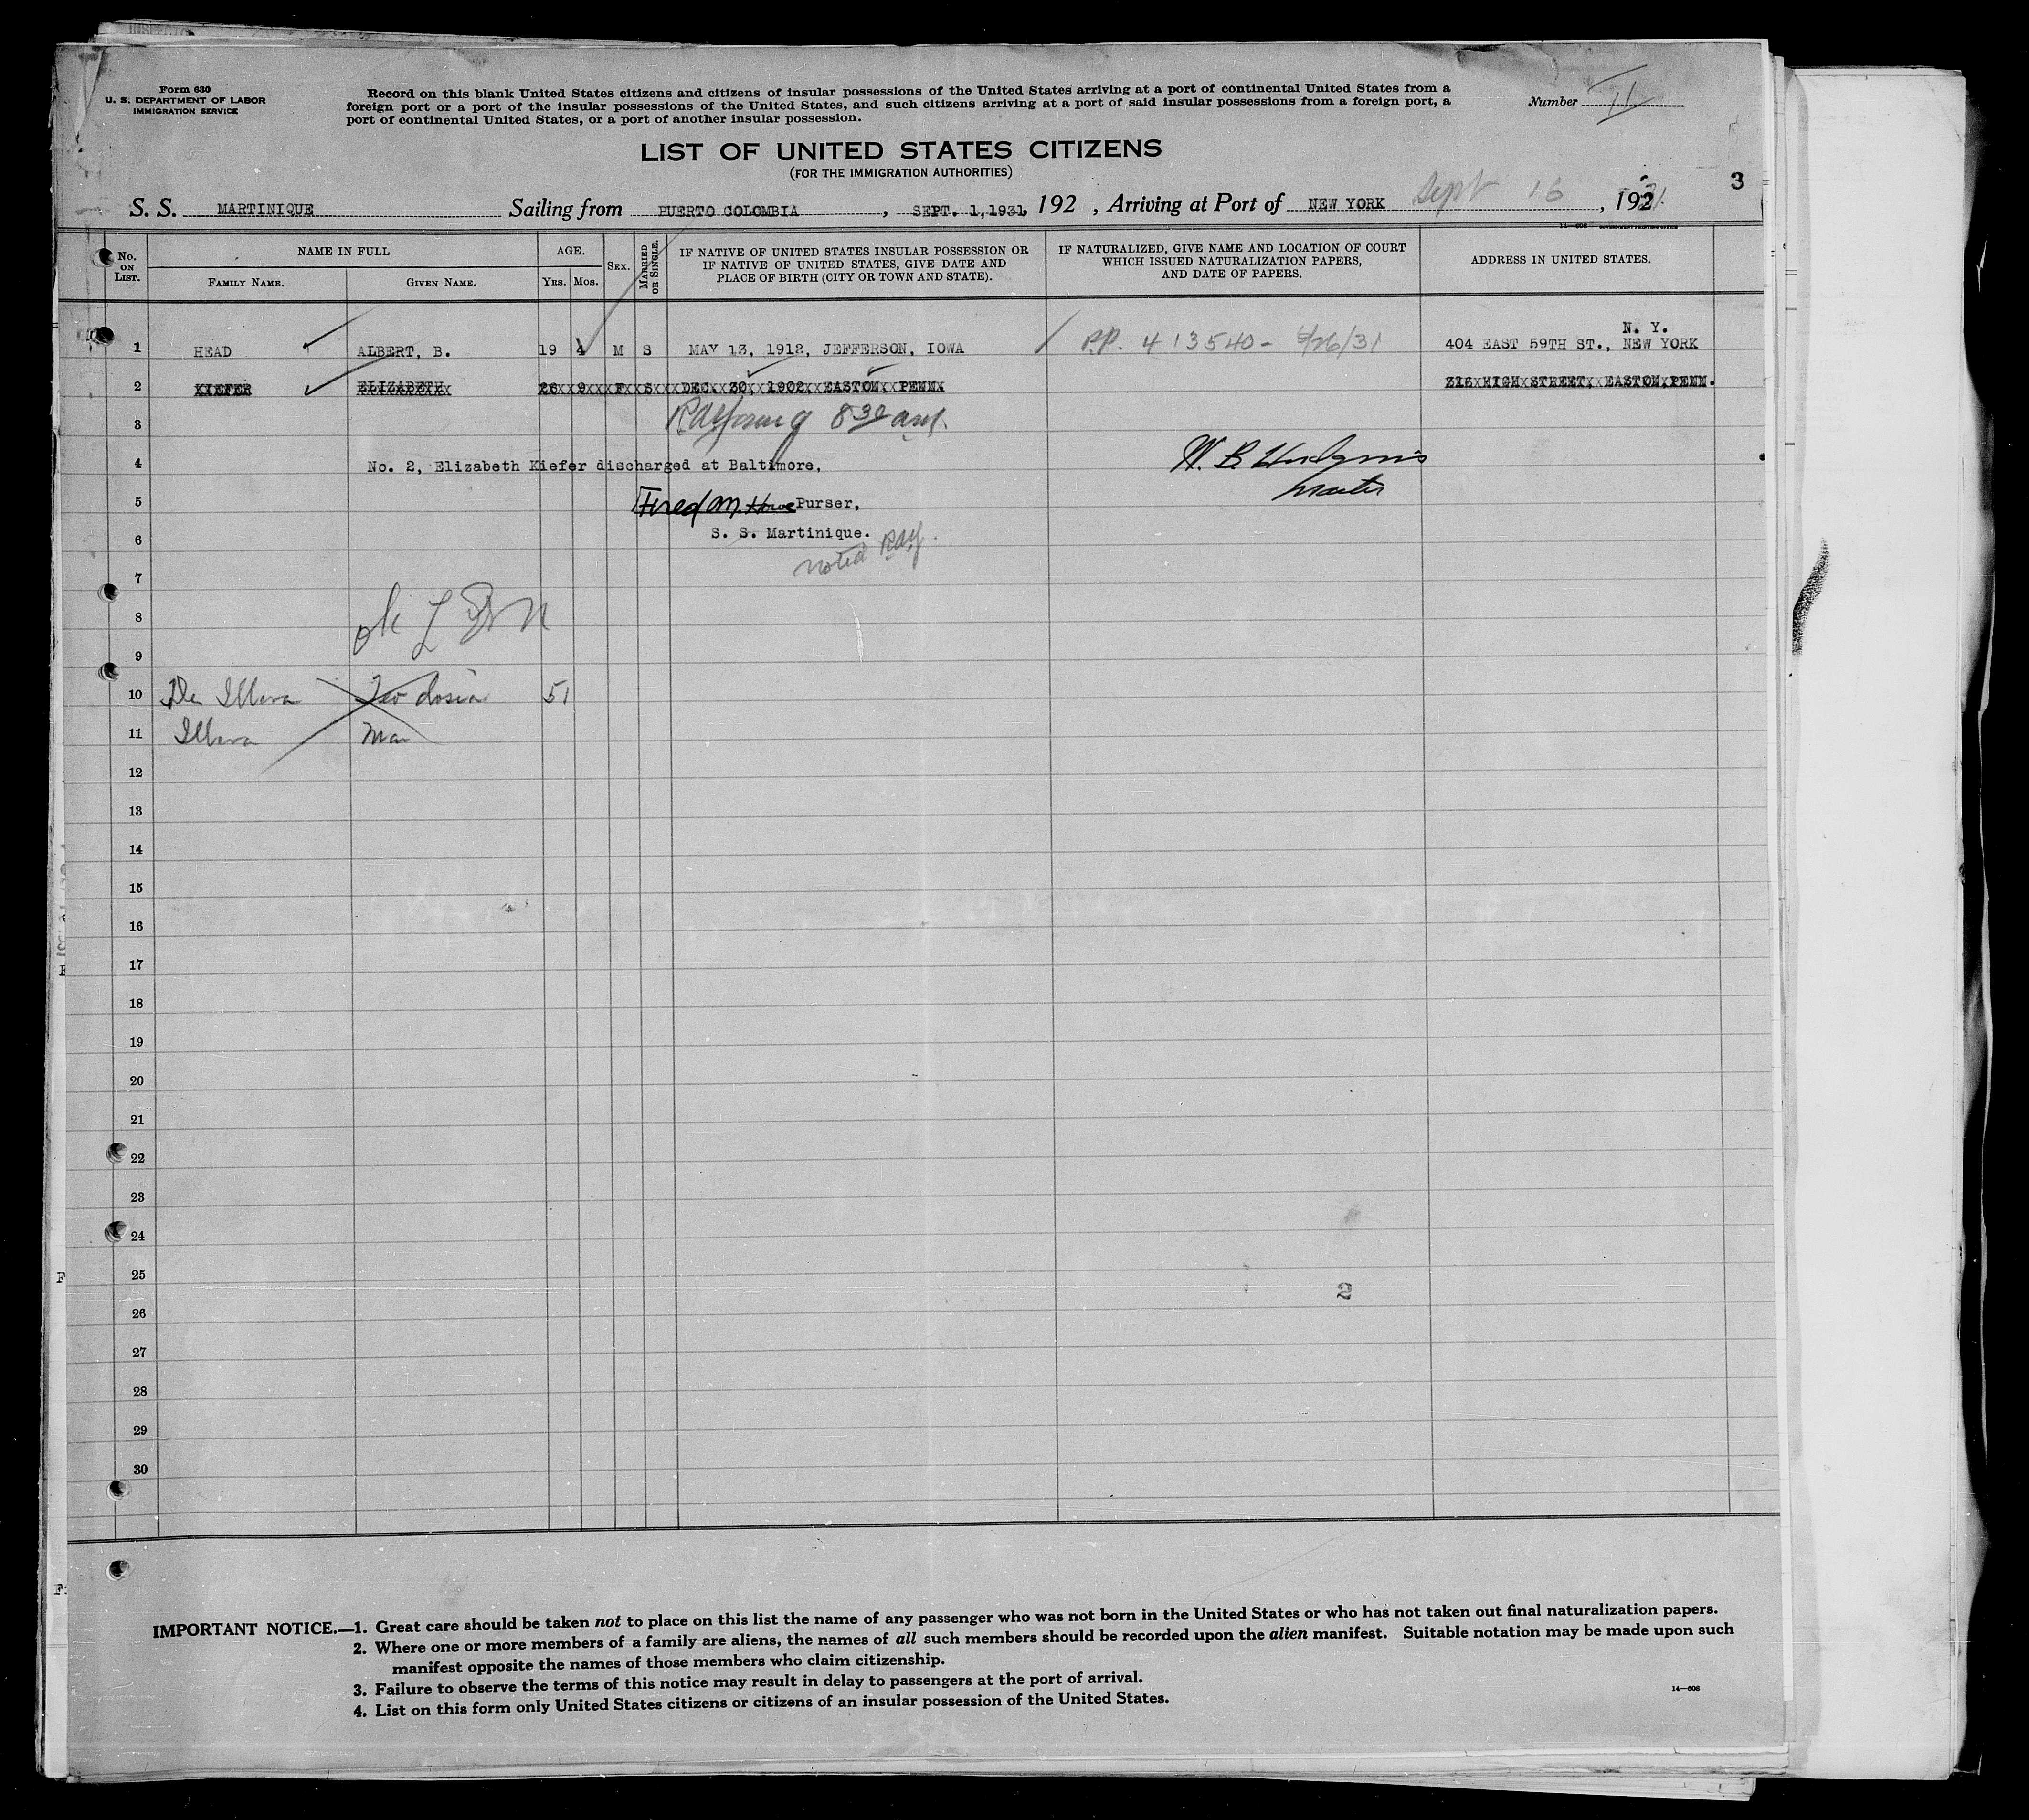 Form 630
U. S. DEPARTMENT OF LABOR
IMMIGRATION SERVICE
Record on this blank United States citizens and citizens of insular possessions of the United States arriving at a port of continental United States from a
foreign port or a port of the insular possessions of the United States, and such citizens arriving at a port of said insular possessions from a foreign port, a
port of continental United States, or a port of another insular possession.
Number 11
LIST OF UNITED STATES CITIZENS
(FOR THE IMMIGRATION AUTHORITIES)
3
S. S. MARTINIQUE Sailing from PUERTO COLOMBIA, SEPT. 1, 1931, 192 , Arriving at Port of NEW YORK Sept 16, 1931
No. ON LIST. NAME IN FULL FAMILY NAME. GIVEN NAME. AGE. YRS. MOS. SEX. MARRIED OR SINGLE. IF NATIVE OF UNITED STATES INSULAR POSSESSION OR IF NATIVE OF UNITED STATES, GIVE DATE AND PLACE OF BIRTH (CITY OR TOWN AND STATE). IF NATURALIZED, GIVE NAME AND LOCATION OF COURT WHICH ISSUED NATURALIZATION PAPERS, AND DATE OF PAPERS. ADDRESS IN UNITED STATES.
1 HEAD ALBERT, B. 19 4 M S MAY 13, 1912, JEFFERSON, IOWA P.P. 413540 - /26/31 404 EAST 59TH ST., NEW YORK N. Y.
2 KIEFER ELIZABETH 28 9 F S DEC. 30, 1902, EASTON, PENN 316 HIGH STREET, EASTON, PENN.
3 8 30 am.
4 No. 2, Elizabeth Kiefer discharged at Baltimore. W. B. Hudgins
Master
5 Fred M. Howe Purser,
6 S. S. Martinique.
noted
7
8 ok
9
10 De Illera Teodosia 51
11 Illera Ma
12
13
14
15
16
17
18
19
20
21
22
23
24
25
2
26
27
28
29
30
IMPORTANT NOTICE.—1. Great care should be taken not to place on this list the name of any passenger who was not born in the United States or who has not taken out final naturalization papers.
2. Where one or more members of a family are aliens, the names of all such members should be recorded upon the alien manifest. Suitable notation may be made upon such
manifest opposite the names of those members who claim citizenship.
3. Failure to observe the terms of this notice may result in delay to passengers at the port of arrival.
4. List on this form only United States citizens or citizens of an insular possession of the United States.
14—606